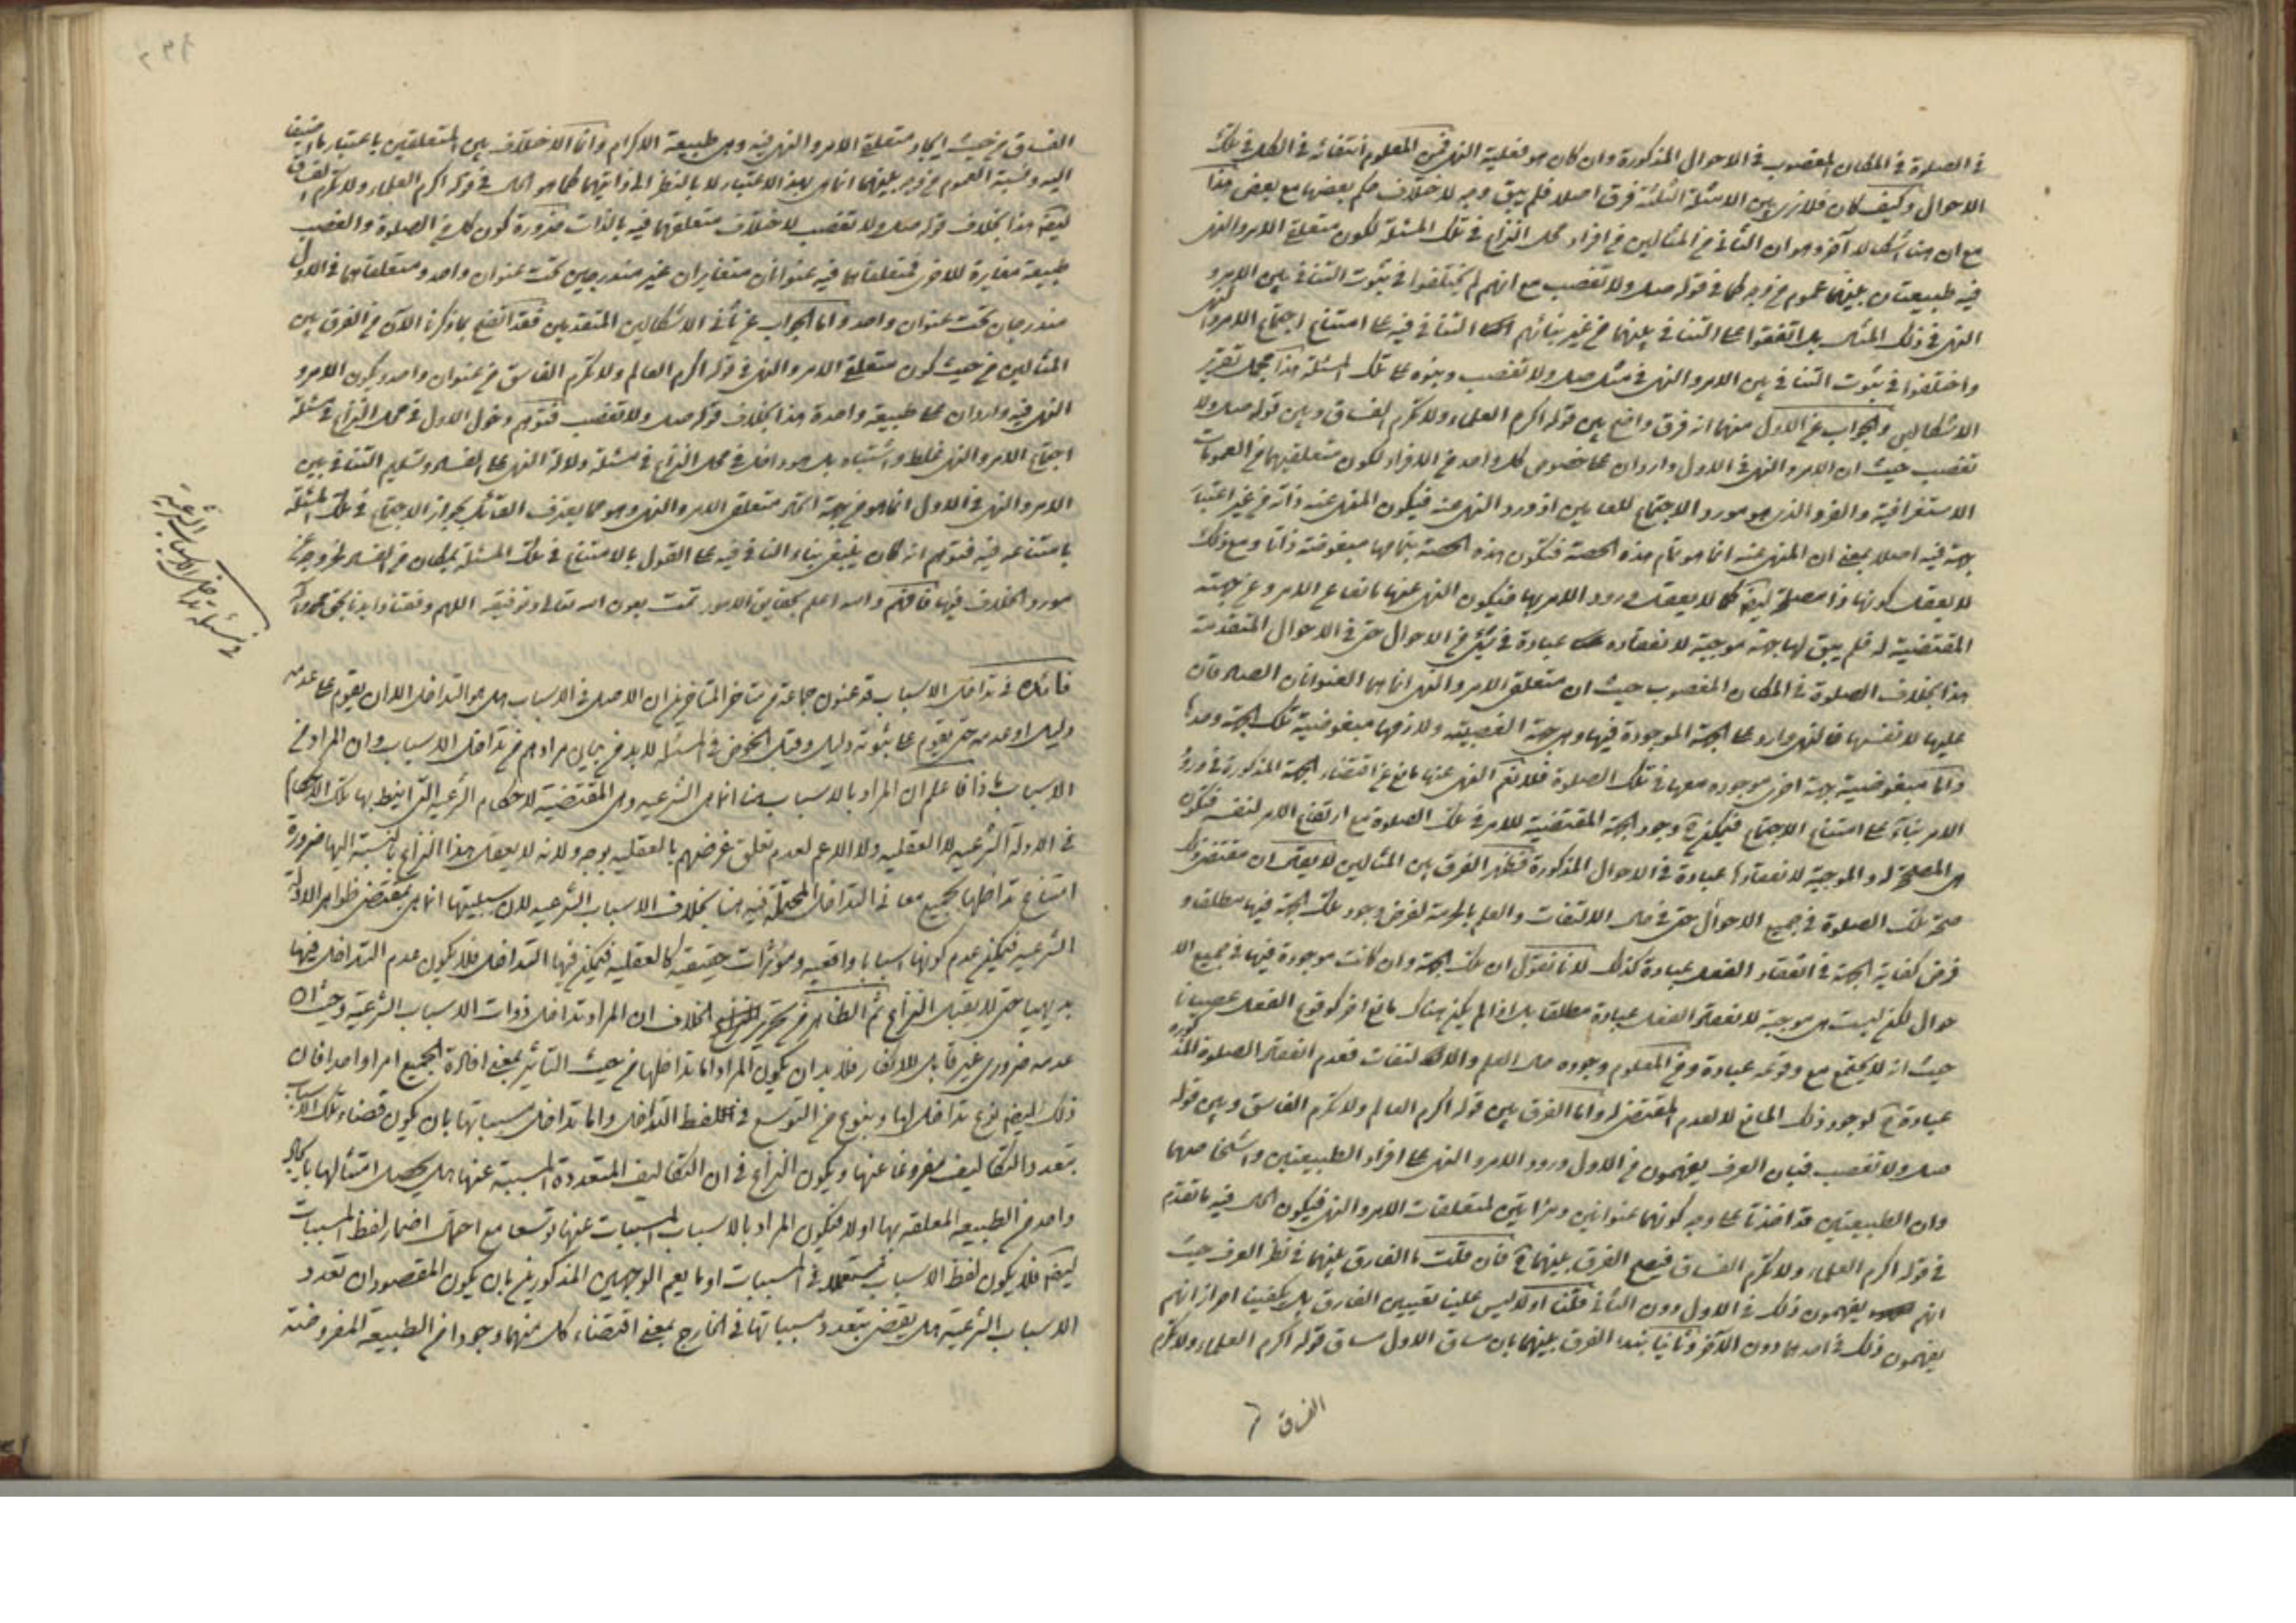 في الصلوة في المكان المغصوب في الاحوال المذكورة وان كان هو فعلية النهي فمن المعلوم انتفائه في الكل في تلك
الاحوال وكيف كان فلا نرى بين الامثلة الثلثة فرق اصلا فلم يبق وجه لاختلاف حكم بعضها مع بعض هذا
مع ان هنا اشكالا آخر وهو ان الثاني من المثالين من افراد محل النزاع في تلك المسئلة لكون متعلق الامر والنهي
فيه طبيعتان بينهما عموم من وجه كما في قوله صل ولا تغصب مع انهم لم يختلفوا في ثبوت التنافي بين الامر و
النهي في ذلك المثال بل اتفقوا على التنافي بينهما من غير بنائهم التنافي فيه على امتناع اجتماع الامر والنهي
واختلفوا في ثبوت التنافي بين الامر والنهي في مثل صل ولا تغصب وبنوه على تلك المسئلة هذا محصل تقرير
الاشكالين والجواب عن الاول منهما انه فرق واضح بين قوله اكرم العلماء ولا تكرم الفساق وبين قوله صل ولا
تغصب حيث ان الامر والنهي في الاول واردان على خصوص كل واحد من الافراد لكون متعلقيهما من العمومات
الاستغراقية والفرد الذي هو مورد الاجتماع للعامين اذ ورد النهي عنه فيكون المنهي عنه ذاته من غير اعتبار
جهة فيه اصلا بمعنى ان المنهي عنه انما هو تمام هذه الحصة فتكون هذه الحصة بتمامها مبغوضة ذاتا ومع ذلك
لا يعقل كونها ذا مصلحة ايضا كما لا يعقل ورود الامر بها فيكون النهي عنها مانعا عن الامر وعن جهته
المقتضية له فلم يبق لها جهة موجبة لانعقاده عبادة في شيء من الاحوال حتى في الاحوال المتقدمة
هذا بخلاف الصلوة في المكان المغصوب حيث ان متعلق الامر والنهي انما هما العنوانان الصادقان
عليها لا نفسها فالنهي وارد على الجهة الموجودة فيها وهي جهة الغصبية ولازمها مبغوضية تلك الجهة وحدها
واما مبغوضية جهة اخرى موجودة معها في تلك الصلوة فلا فالنهي عنها مانع عن اقتضاء الجهة المذكورة في ورود
الامر بناء على امتناع الاجتماع فيمكن ح وجود الجهة المقتضية للامر في تلك الصلوة مع ارتفاع الامر لنفسه فتكون
هي المصلحة له والموجبة لانعقادها عبادة في الاحوال المذكورة فظهر الفرق بين المثالين لا يقال ان مقتضى ذلك
صحة تلك الصلوة في جميع الاحوال حتى في حال الالتفات والعلم بالحرمة لفرض وجود تلك الجهة فيها مطلقا و
فرض كفاية الجهة في انعقاد الفعل عبادة كذلك لانا نقول ان تلك الجهة وان كانت موجودة فيها في جميع الا
حوال لكن ليست هي موجبة لانعقاد الفعل عبادة مطلقا بل اذا لم يكن هناك مانع اخر كوقوع الفعل عصيانا
حيث انه لا يجتمع مع وقوعه عبادة ومن المعلوم وجوده حال العلم والالتفات فعدم انعقاد الصلوة المذكورة
عبادة ح لوجود ذلك المانع لا لعدم المقتضي له واما الفرق بين قوله اكرم العالم ولا تكرم الفاسق وبين قوله
صل ولا تغصب فبان العرف يفهمون من الاول ورود الامر والنهي على افراد الطبيعتين واشخاصهما
وان الطبيعتين قد اخذتا على وجه كونهما عنوانين ومرآتين لمتعلقات الامر والنهي فيكون الحال فيه ما تقدم
في قوله اكرم العلماء ولا تكرم الفساق فيصح الفرق بينهما ح فان قلت ما الفارق بينهما في نظر العرف حيث
انهم يفهمون ذلك في الاول دون الثاني قلنا اولا ليس علينا تعيين الفارق بل يكفينا احراز انهم
يفهمون ذلك في احدهما دون الآخر وثانيا نبدأ الفرق بينهما بان مساق الاول مساق قوله اكرم العلماء ولا تكرم
الفساق
الفساق من حيث ايجاد متعلق الامر والنهي فيه وهي طبيعة الاكرام وانما الاختلاف بين المتعلقين باعتبار ما اضيف
اليه ونسبة العموم من وجه بينهما انما هي بهذا الاعتبار لا بالنظر الى ذاتيهما كما هو الحال في قوله اكرم العلماء ولا تكرم الفساق
ايضا هذا بخلاف قوله صل ولا تغصب لاختلاف متعلقهما فيه بالذات ضرورة كون كل من الصلوة والغصب
طبيعة مغايرة للاخرى فمتعلقاهما فيه عنوانان متغايران غير مندرجين تحت عنوان واحد ومتعلقاهما في الاول
مندرجان تحت عنوان واحد واما الجواب عن ثاني الاشكالين المتقدمين فقد اتضح بما ذكرنا الآن من الفرق بين
المثالين من حيث كون متعلق الامر والنهي في قوله اكرم العالم ولا تكرم الفاسق من عنوان واحد ويكون الامر و
النهي فيه واردان على طبيعة واحدة هذا بخلاف قوله صل ولا تغصب فتوهم دخول الاول في محل النزاع في مسئلة
اجتماع الامر والنهي غلط واشتباه بل هو داخل في محل النزاع في مسئلة دلالة النهي على الفساد وتسليم التنافي بين
الامر والنهي في الاول انما هو من جهة اتحاد متعلق الامر والنهي وهو مما يعترف القائل بجواز الاجتماع في تلك المسئلة
بامتناعه فيه فتوهم انه كان ينبغي بناء التنافي فيه على القول بالامتناع في تلك المسئلة بمكان من الفساد لخروجه عن
مورد الخلاف فيها فافهم والله اعلم بحقايق الامور تمت بعون الله تعالى وتوفيقه اللهم وفقنا وايدنا بحق محمد وآله
في مسئلة تداخل الاسباب الشرعية
فائدة في تداخل الاسباب قد عنون جماعة من متاخر المتاخرين ان الاصل في الاسباب هل هو التداخل الا ان يقوم على عدمه
دليل او عدمه حتى يقوم على ثبوته دليل وقبل الخوض في المسئلة لا بد من بيان مرادهم من تداخل الاسباب وان المراد من
الاسباب ماذا فاعلم ان المراد بالاسباب هنا انما هي الشرعيه وهي المقتضية للاحكام الشرعيه التي انيط بها تلك الاحكام
في الادلة الشرعيه لا العقليه ولا الاعم لعدم تعلق غرضهم بالعقليه بوجه ولانه لا يعقل هذا النزاع بالنسبة اليها ضرورة
امتناع تداخلها بجميع معاني التداخل المحتملة فيه هنا بخلاف الاسباب الشرعيه لان سببيتها انما هي بمقتضى ظواهر الادلة
الشرعيه فيمكن عدم كونها اسبابا واقعيه ومؤثرات حقيقيه كالعقليه فيمكن فيها التداخل فلا يكون عدم التداخل فيها
بديهيا حتى لا يقبل النزاع ثم الظاهر من تحرير الخلاف ان المراد تداخل ذوات الاسباب الشرعية وحيث ان
عدمه ضروري غير قابل للانكار فلا بد ان يكون المراد اما تداخلها من حيث التاثير بمعنى افادة الجميع امرا واحدا فان
ذلك ايضا نوع تداخل لها وبنوع من التوسع في لفظ التداخل واما تداخل مسبباتها بان يكون قضاء تلك الاسباب
بتعدد التكاليف مفروغا عنها ويكون النزاع في ان التكاليف المتعددة المسببة عنها هل يحصل امتثالها بايجاد
واحد من الطبيعه المعلقه بها اولا فيكون المراد بالاسباب المسببات عنها توسعا مع احتمال اضمار لفظ المسببات
ايضا فلا يكون لفظ الاسباب مستعملا في المسببات او ما يعم الوجهين المذكورين بان يكون المقصود ان تعدد
الاسباب الشرعية هل يقتضي تعدد مسبباتها في الخارج بمعنى اقتضاء كل منهما وجودا من الطبيعه المفروضة